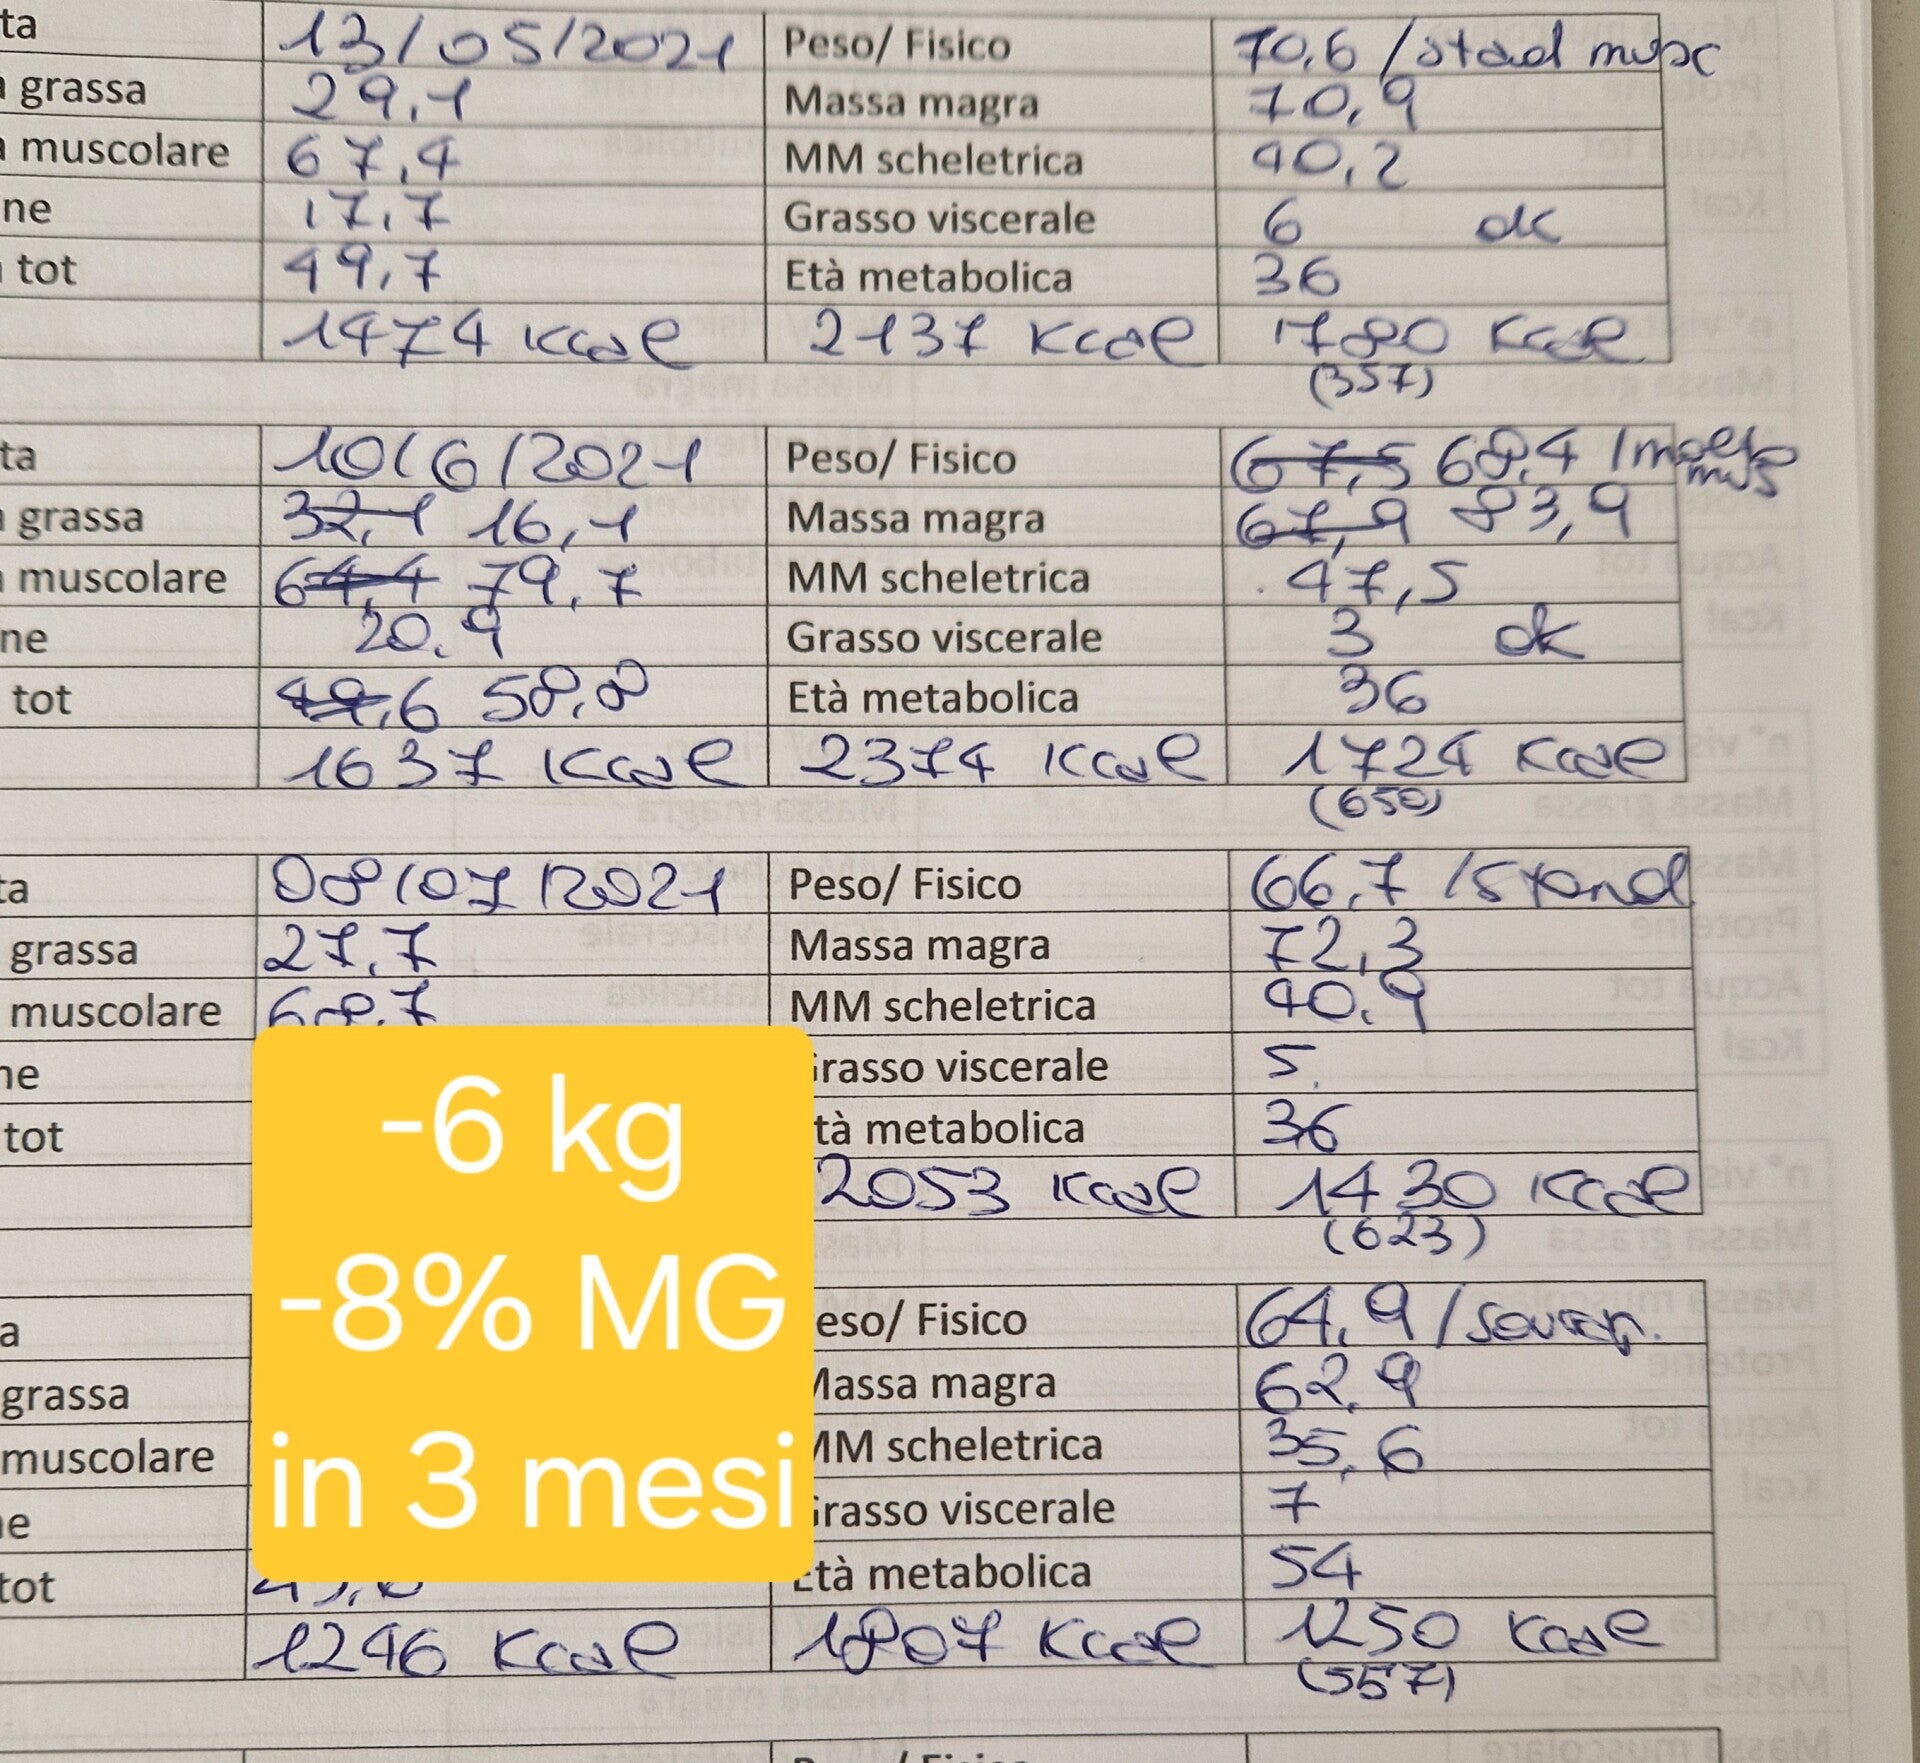 ta 13/05/2021 Peso/ Fisico 70,6 /stad musc
grassa 29,1 Massa magra 70,9
muscolare 67,4 MM scheletrica 40,2
ne 17,7 Grasso viscerale 6 ok
tot 49,7 Età metabolica 36
1474 Kcal 2137 Kcal 1780 Kcal
(357)
ta 10/6/2021 Peso/ Fisico 67,5 68,4 /molto mus
grassa 32,1 16,1 Massa magra 67,9 83,9
muscolare 64,4 79,7 MM scheletrica 47,5
ne 20,9 Grasso viscerale 3 ok
tot 49,6 58,8 Età metabolica 36
1637 Kcal 2374 Kcal 1724 Kcal
(650)
ta 08/07/2021 Peso/ Fisico 66,7 /Stand
grassa 27,7 Massa magra 72,3
muscolare 68,7 MM scheletrica 40,9
ne rasso viscerale 5
tot tà metabolica 36
2053 Kcal 1430 Kcal
(623)
-6 kg
-8% MG
in 3 mesi
a eso/ Fisico 64,9 /sovrap.
grassa Massa magra 62,9
muscolare MM scheletrica 35,6
ne rasso viscerale 7
tot Età metabolica 54
1246 Kcal 1807 Kcal 1250 Kcal
(557)